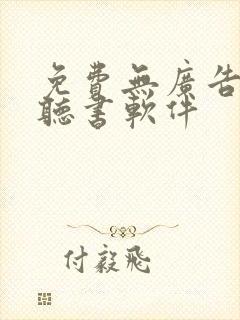 免費無廣告
聽書軟件
付毅飛